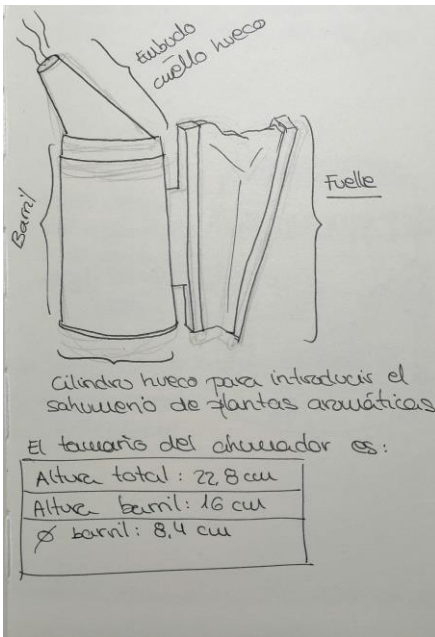 Embudo
cuello hueco
Barril
Fuelle
cilindro hueco para introducir el
sahumerio de plantas aromáticas
El tamaño del ahumador es:
Altura total: 22,8 cm
Altura barril: 16 cm
Ø barril: 8,4 cm